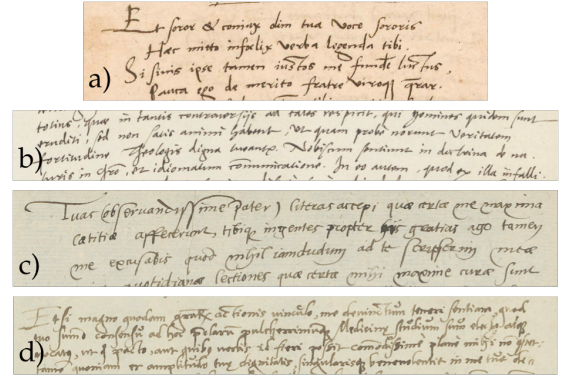 a)
Et soror & coniux olim tua voce sororis
Hac mitto infœlix verba legenda tibi.
Si sinis ipse tamen iustos me funde luctus,
Pauca ego de merito fratre viroq;
b)
totius: quae in tantis controversijs ad tales respicit, qui homines quidem sunt
eruditi, sed non satis animi habent, ut quam probè norunt veritatem
fortitudine Theologis digna tueantur. Nobiscum sentiunt in doctrina de
in idiomatum communicatione. In eo autem, quod ex illa infalli-
c)
Tuas (observandissime Pater) literas accepi quæ certæ me maxima
lætitia affecerunt, tibiq; ingentes propter gratias ago tamen
me excusabis quod nihil iamdudum ad te scripserim meæ
quotidianæ lectiones quæ certæ mihi maximæ curæ sunt
d)
Etsi magno quodam actionis vinculo, me devinctum teneri sentiam, quod
tuo consensu ad hoc pulcherrimumq Medicinæ studium
quo pacto, aut quibus verbis id fieri possit commodissime plane mihi no
quoniam et amplitudo tuæ dignitatis, singularisq benevolentiæ in me tuæ